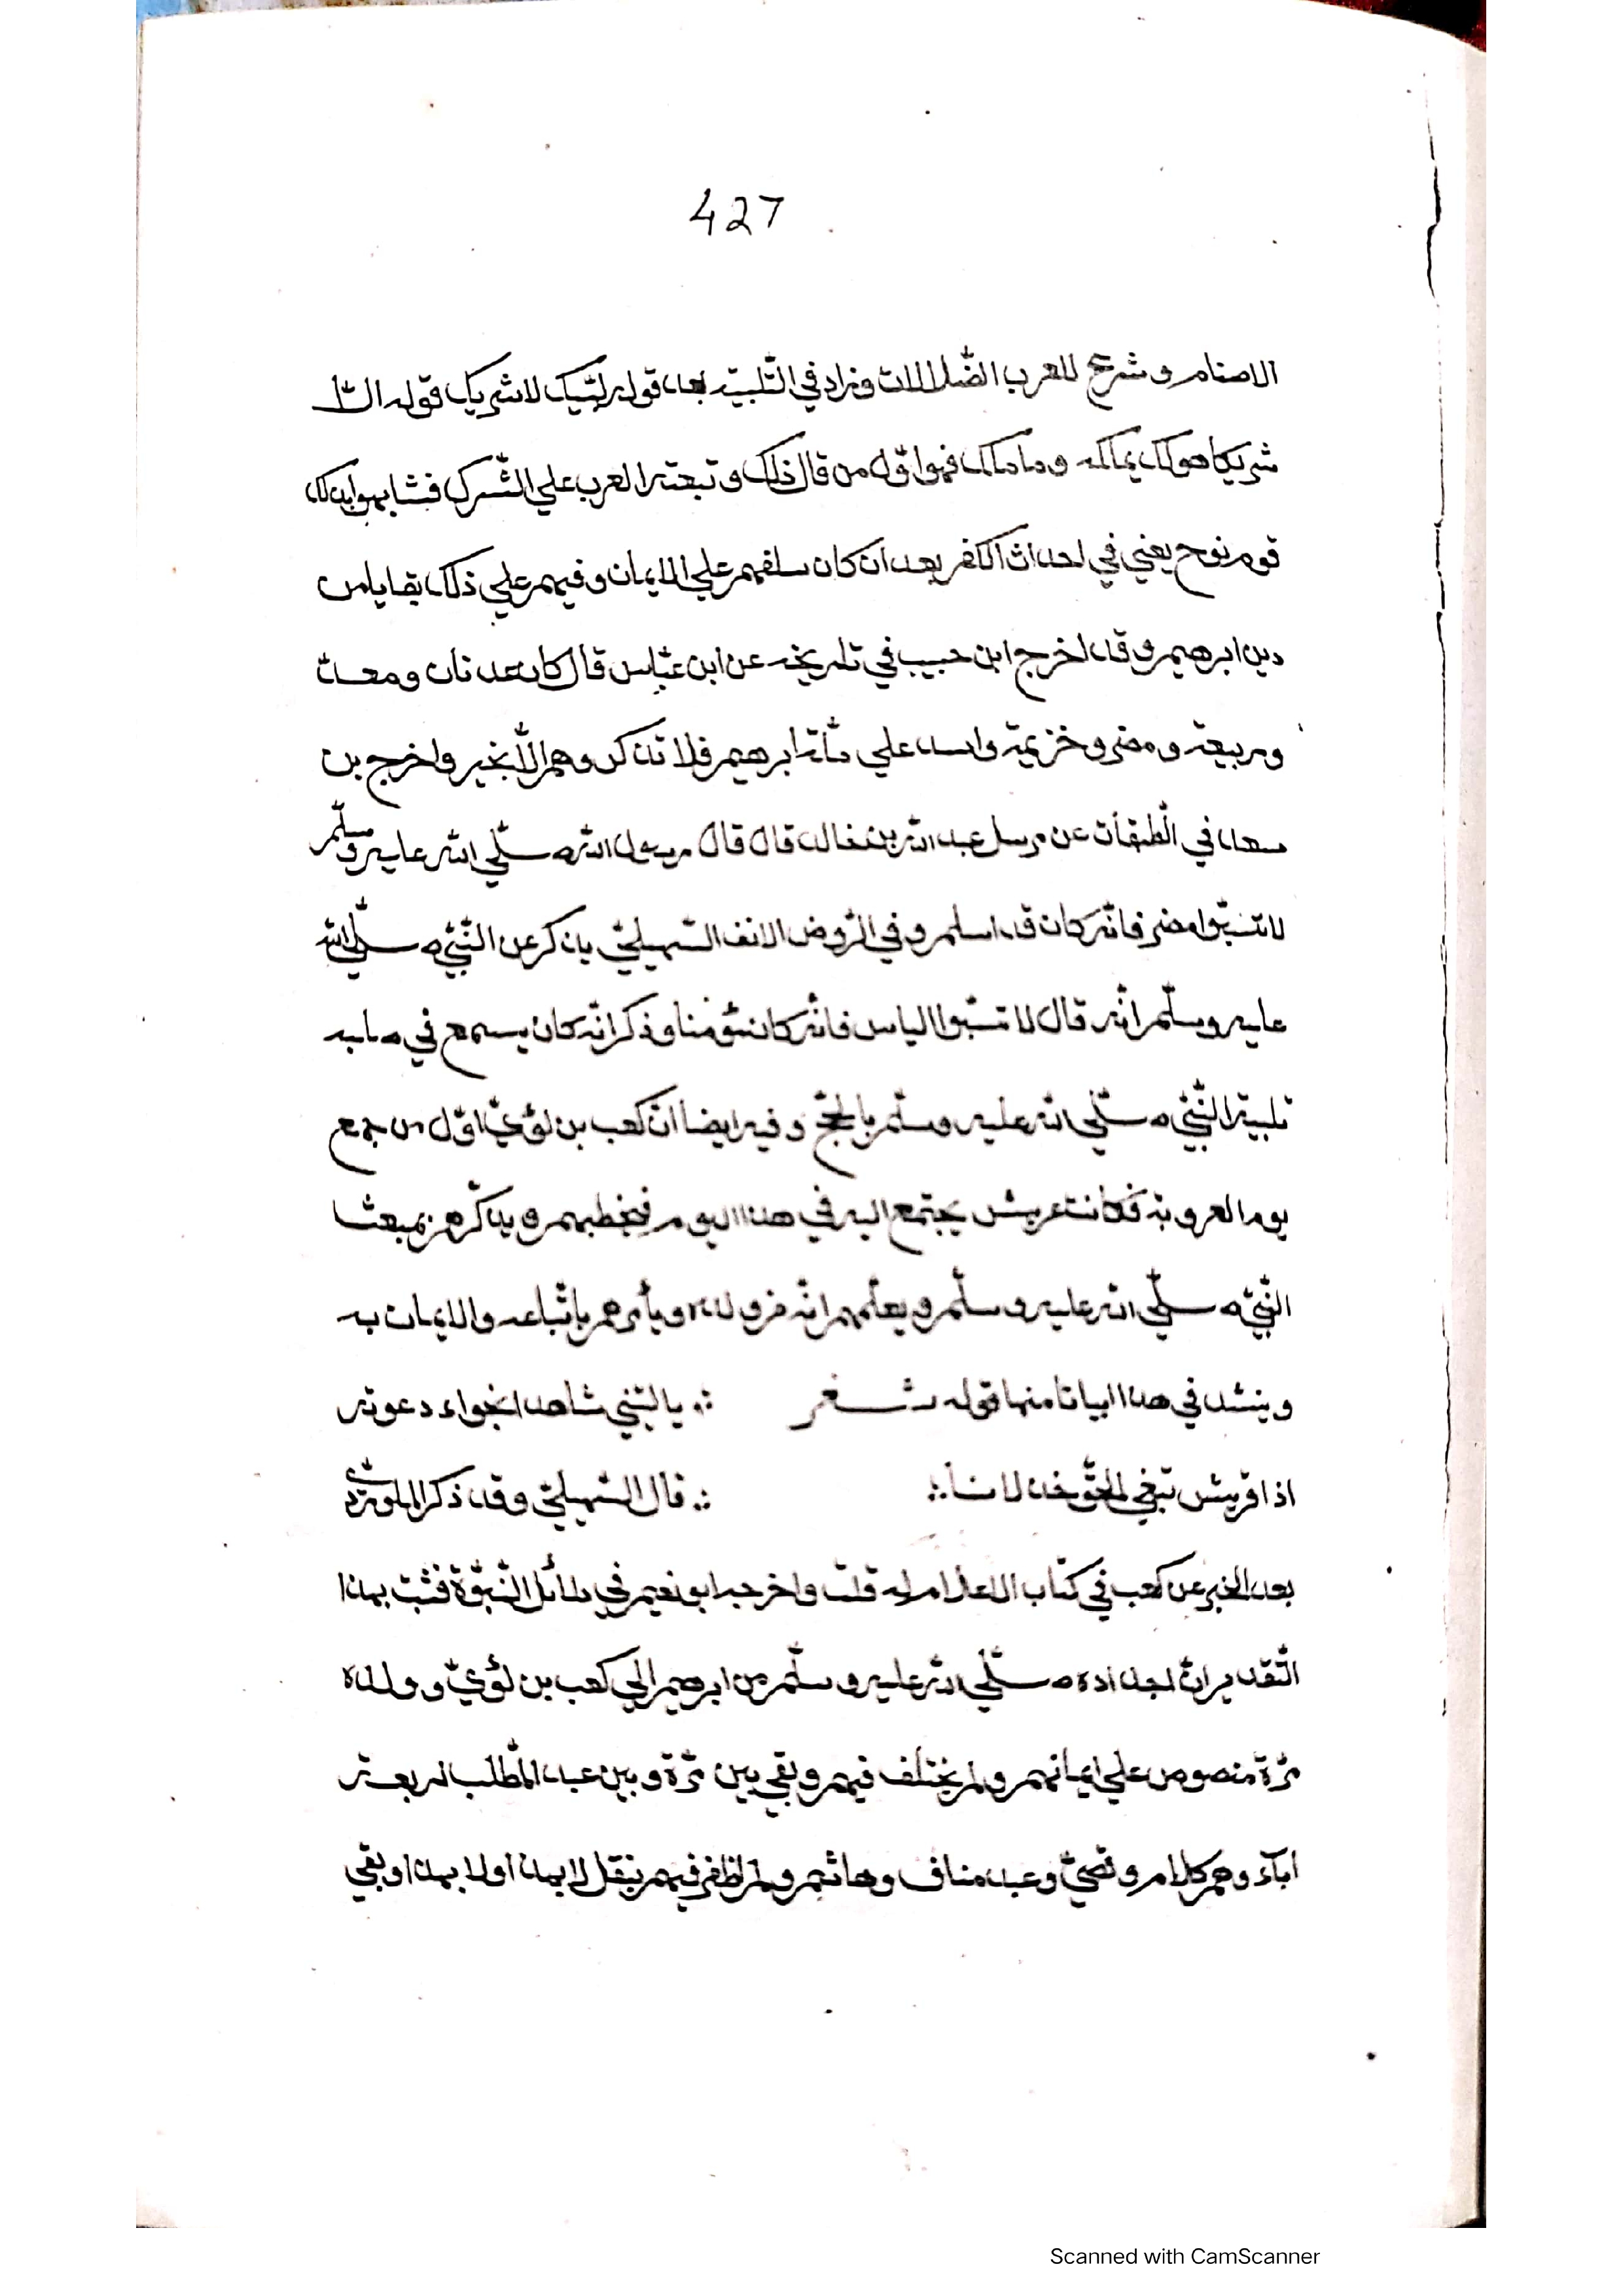 427
الاصنام و شرع للعرب الضّلالات وزاد في التّلبية بعد قوله لبّيك لا شريك قوله الّا
شريكا هو لك يملكه وما ملك فهو اوّل من قال ذلك و تبعته العرب علي الشّرك فشابهوا بذلك
قوم نوح يعني في احداث الكفر بعد ان كان سلفهم علي الايمان و فيهم علي ذلك بقايا من
دين ابرهيم و قد اخرج ابن حبيب في تاريخه عن ابن عبّاس قال كان عدنان و معدّ
و ربيعة و مضر و خزيمة واسد علي ملّة ابرهيم فلا تذكروهم الّا بخير و اخرج بن
سعد في الطبقات عن مرسل عبد الله بن خالد قال قال رسول الله صلّي الله عليه وسلّم
لا تسبّوا مضر فانّه كان قد اسلم و في الرّوض الانف السّهيليّ يذكر عن النّبيّ صلّي الله
عليه وسلّم انّه قال لا تسبّوا الياس فانّه كان مؤمنا و ذكر انّه كان يسمع في صلبه
تلبية النّبيّ صلّي الله عليه وسلّم بالحجّ و فيه ايضا انّ كعب بن لؤيّ اوّل من جمع
يوم العروبة فكانت عريش يجتمع اليه في هذا اليوم فيخطبهم و يذكّرهم بمبعث
النّبيّ صلّي الله عليه و سلّم و يعلّمهم انّه من ولده و يأمرهم باتّباعه والايمان به
و ينشد في هذا ابياتا منها قوله شعر ∴ يا ليتني شاهد نجواء دعوته
اذا قريش تبغي الحقّ خذلانا ∴ ∴ قال السّهيليّ و قد ذكر الماوردّي
بعد الخبر عن كعب في كتاب الاعلام له قلت و اخرجه ابو نعيم في دلائل النّبوّة فثبت بهذا
التّقدير انّ اجداده صلّي الله عليه وسلّم من ابرهيم الي كعب بن لؤيّ و ولده
مرّة منصوص علي ايمانهم و لم يختلف فيهم و بقي بين مرّة و بين عبد المّطلب اربعة
اباء وهم كلام و قصيّ و عبد مناف و هاشم و لم اظفر فيهم بنقل لا بهذا و لا بهذا و بقي
Scanned with CamScanner